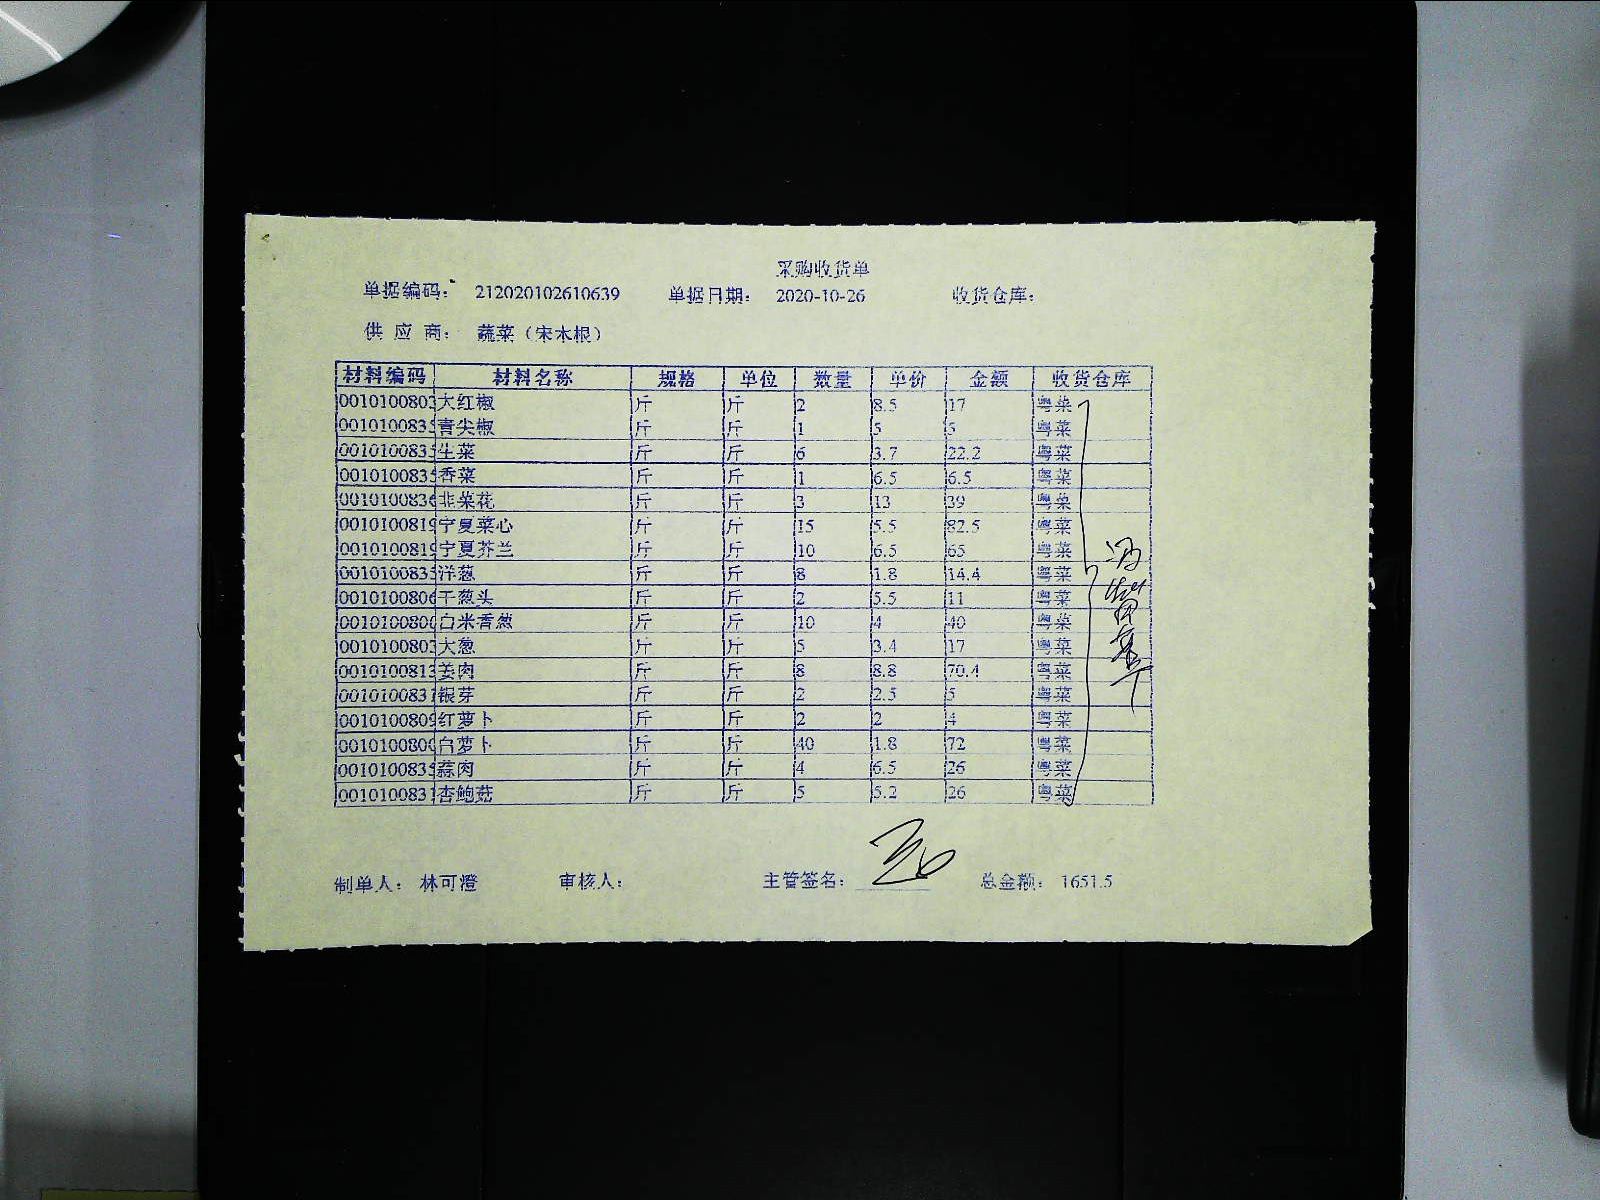 采购收货单
单据编码： 212020102610639 单据日期： 2020-10-26 收货仓库：
供 应 商： 蔬菜（宋木根）
材料编码 材料名称 规格 单位 数量 单价 金额 收货仓库
001010080 大红椒 斤 斤 2 8.5 17 粤菜
001010083 青尖椒 斤 斤 1 5 5 粤菜
001010083 生菜 斤 斤 6 3.7 22.2 粤菜
001010083 香菜 斤 斤 1 6.5 6.5 粤菜
001010083 韭菜花 斤 斤 3 13 39 粤菜
001010081 宁夏菜心 斤 斤 15 5.5 82.5 粤菜
001010081 宁夏芥兰 斤 斤 10 6.5 65 粤菜
001010083 洋葱 斤 斤 8 1.8 14.4 粤菜
001010080 干葱头 斤 斤 2 5.5 11 粤菜
001010080 白米香葱 斤 斤 10 4 40 粤菜
001010080 大葱 斤 斤 5 3.4 17 粤菜
001010081 姜肉 斤 斤 8 8.8 70.4 粤菜
001010083 银芽 斤 斤 2 2.5 5 粤菜
001010080 红萝卜 斤 斤 2 2 4 粤菜
001010080 白萝卜 斤 斤 40 1.8 72 粤菜
001010083 蒜肉 斤 斤 4 6.5 26 粤菜
001010083 杏鲍菇 斤 斤 5 5.2 26 粤菜
制单人： 林可澄 审核人： 主管签名： 总金额： 1651.5